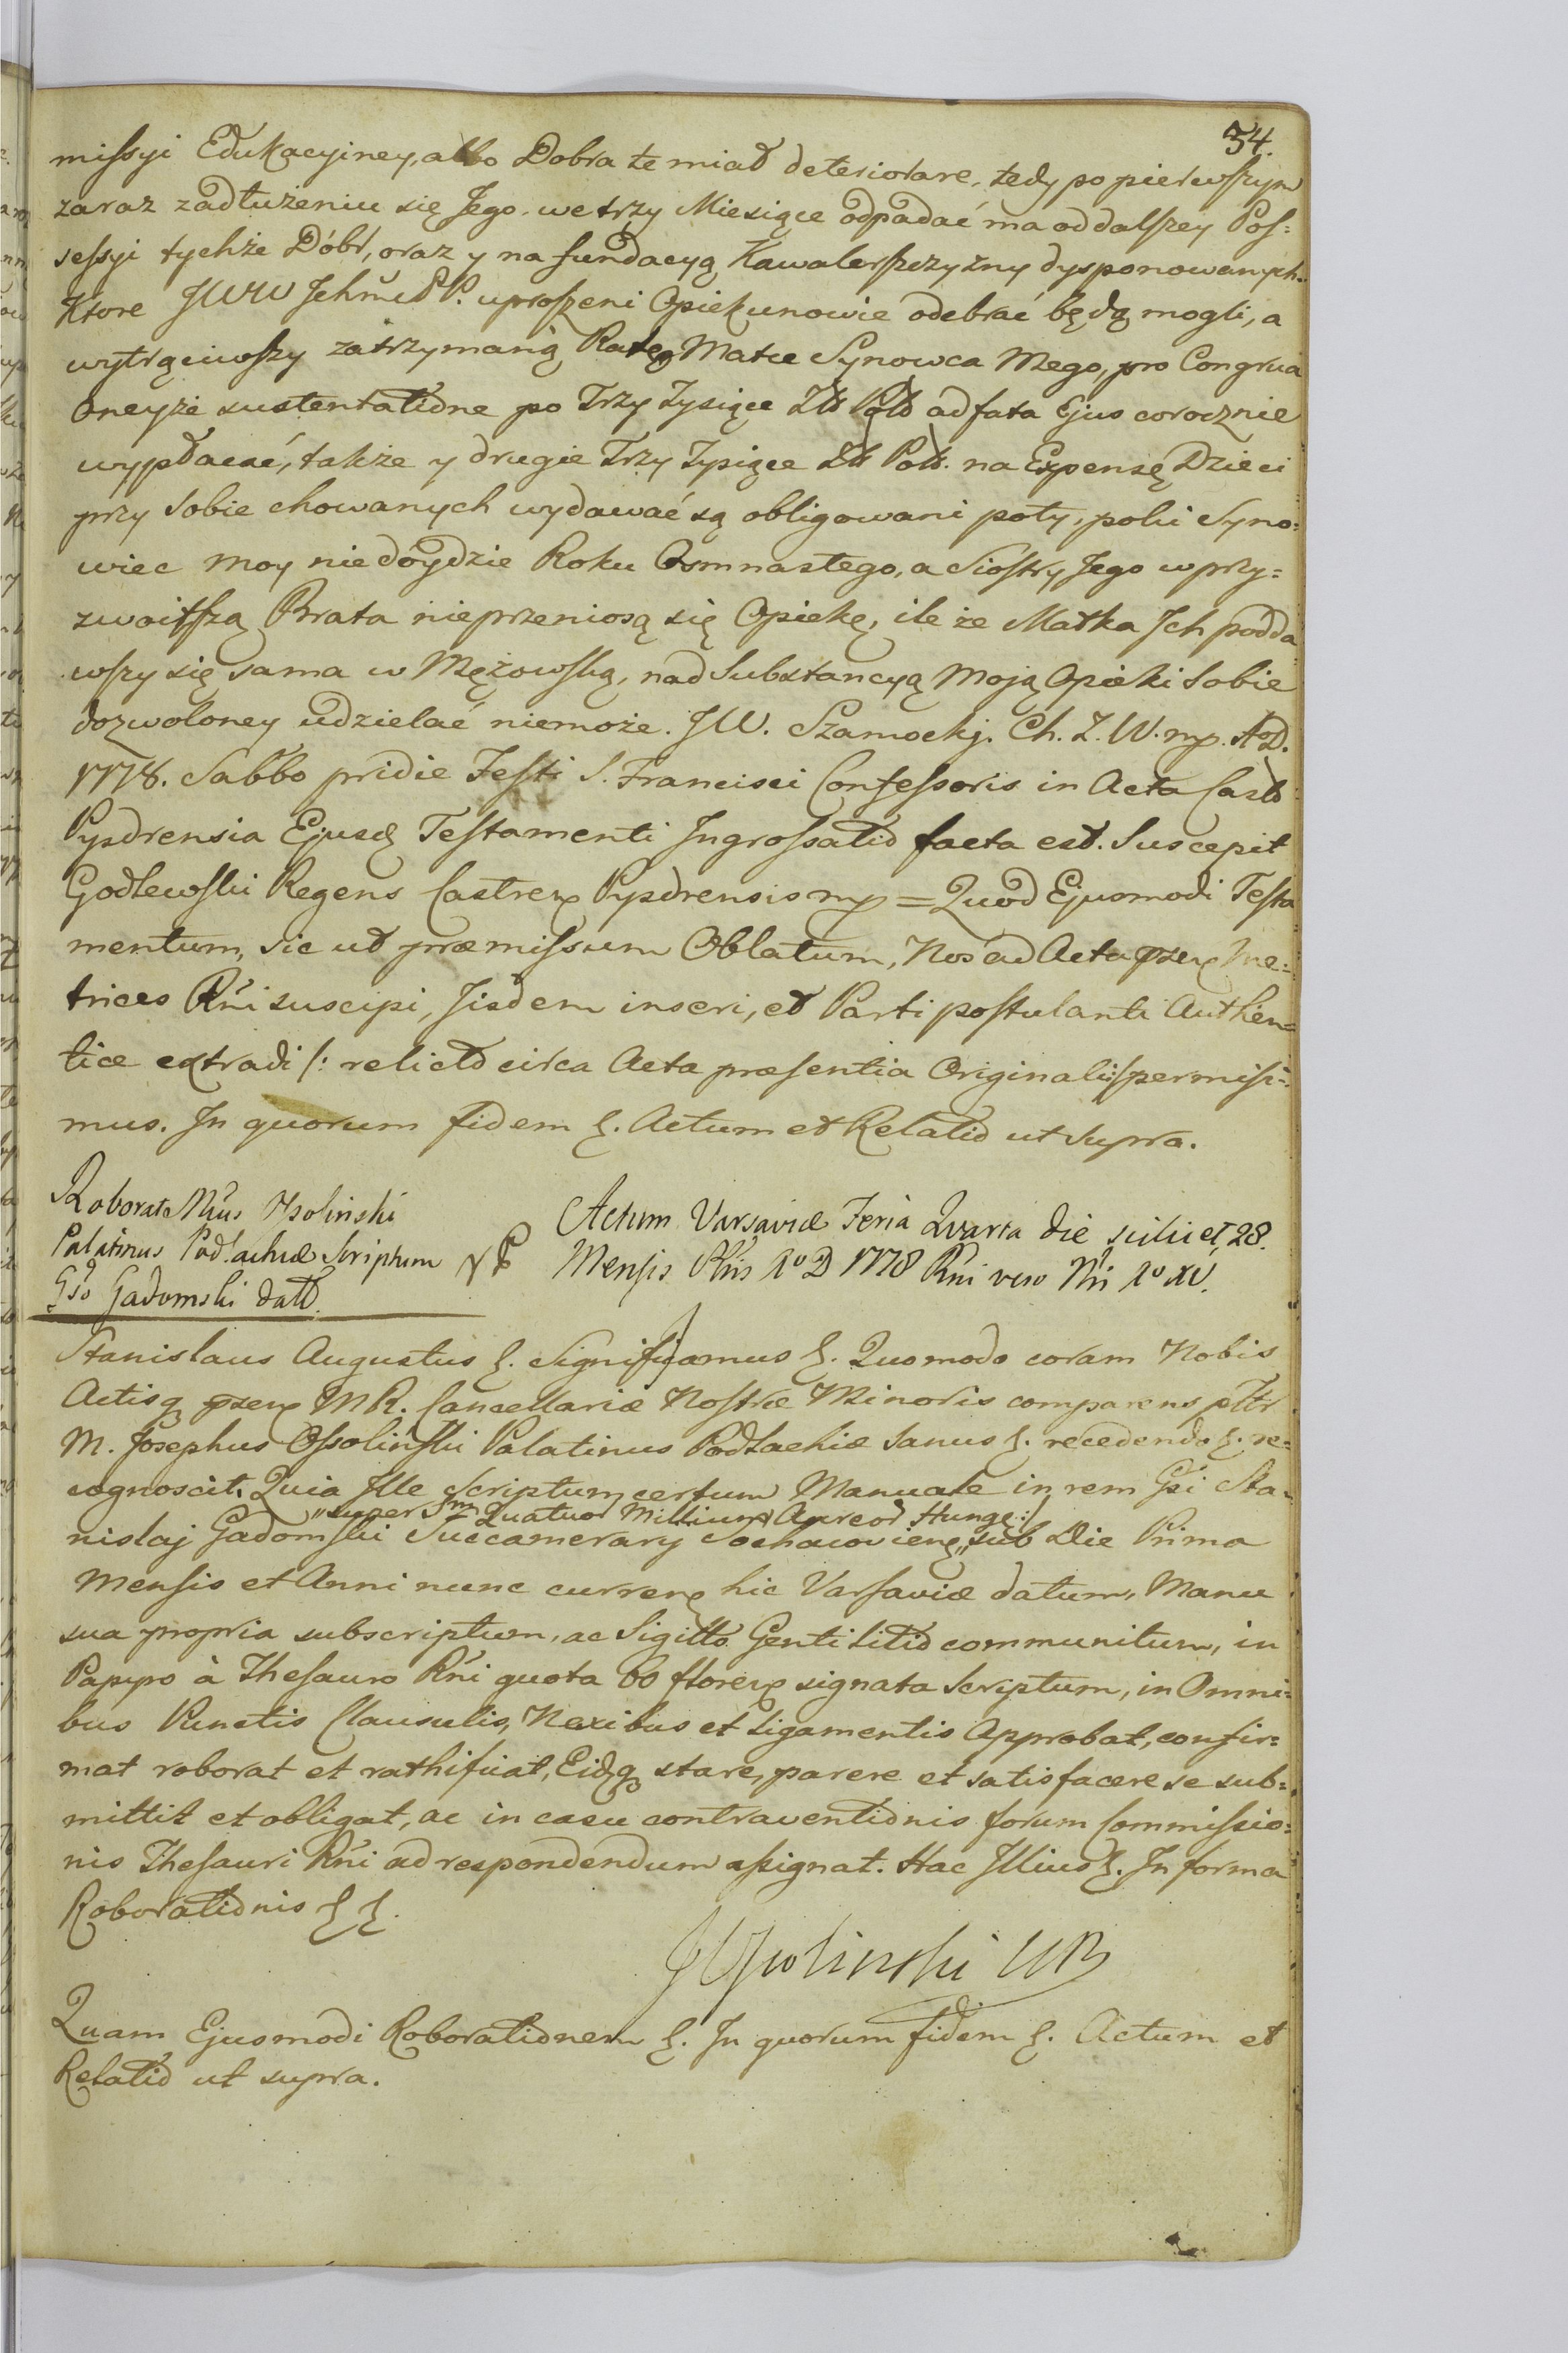 54.
missyi Edukacyiney, albo Dobra te miał deteriorare, tedy po pierwszym
zaraz zadłużeniu się Jego, we trzy Miesiące odpadać ma od dalszey Pos=
sessyi tychże Dóbr, oraz y na fundacyą Kawalerszczyzny dysponowanych.
Ktore JWW Jchmć PP. uproszeni Opiekunowie odebrać będą mogli, a
wytrąciwszy zatrzymaną Ratę Matce Synowca Mego, pro Congrua
Oneyże sustentatione po Trzy Tysiące Zł Pol ad fata Ejus corocznie
wypłacać, także y drugie Trzy Tysiące Zł Pol. na Expensę Dzieci
przy sobie chowanych wydawać są obligowani poty, poki Syno=
wiec moy nie doydzie Roku Osmnastego, a Siostry Jego w przy=
zwoitszą Brata nieprzeniosą się Opiekę, ile że Matka Jch podda
wszy się sama w Mężowską, nad Substancyą Moją Opieki Sobie
dozwoloney udzielać niemoże. JW. Szamockj. Ch. Z. W. mp. AoD.
1778. Sabbo pridie Festi S. Francisci Confessoris in Acta Castr
Pysdrensia Ejusd Testamenti Jngrossatio facta est. Suscepit
Godlewski Regens Castren Pysdrensis mp = Quod Ejusmodi Testa
mentum, sic ut præmissum Oblatum, Nos ad Acta præn Me=
trices Rni suscipi, Jisdem inseri, et Parti postulanti Authen=
tice extradi /: relicto circa Acta præsentia Originali :/ permisi=
mus. In quorum fidem &. Actum et Relatio ut supra.
Roborat Mcus Ossoliński
Palatinus Podlachiæ Scriptum
Gso Gadomski datt
Actum Varsaviæ Feria Quarta die scilicet 28.
Mensis Obris Ao D 1778 Rni vero Nri Ao XV.
Stanislaus Augustus &. Significamus &. Quomodo coram Nobis
Actisq præn MR. Cancellariæ Nostræ Minoris comparens pltr
M. Josephus Ossoliński Palatinus Podlachiæ sanus &. recedendo &. re=
cognoscit. Quia Jlle Scriptum certum Manuale in rem Gsi Sta=
"super Sm Quatuor Millium Aureor Hung:/
nislaj Gadomski Succamerary Sochacovien, sub Die Prima
Mensis et Anni nunc curren hic Varsaviæ datum, Manu
sua propria subscriptum, ac Sigillo Gentilitio communitum, in
Papyro à Thesauro Rni quota 60 floren signata scriptum, in Omni=
bus Punctis Clausulis, Nexibus et Ligamentis Approbat, confir=
mat roborat et rathificat, Eidq stare, parere et satisfacere se sub=
mittit et obligat, ac in casu contraventionis forum Commissio=
nis Thesauri Rni ad respondendum assignat. Hac Jllius &. In forma
Roborationis & &.
JOssoliński WP
Quam Ejusmodi Roborationem &. In quorum fidem &. Actum et
Relatio ut supra.